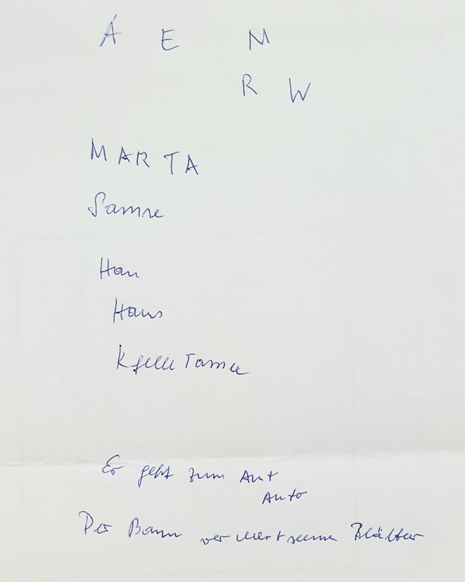 Á E M
R W
MARTA
Samne
Han
Hans
Kfelle Tanne
Er geht zum Ant
Auto
Der Baum verliert seine Blätter